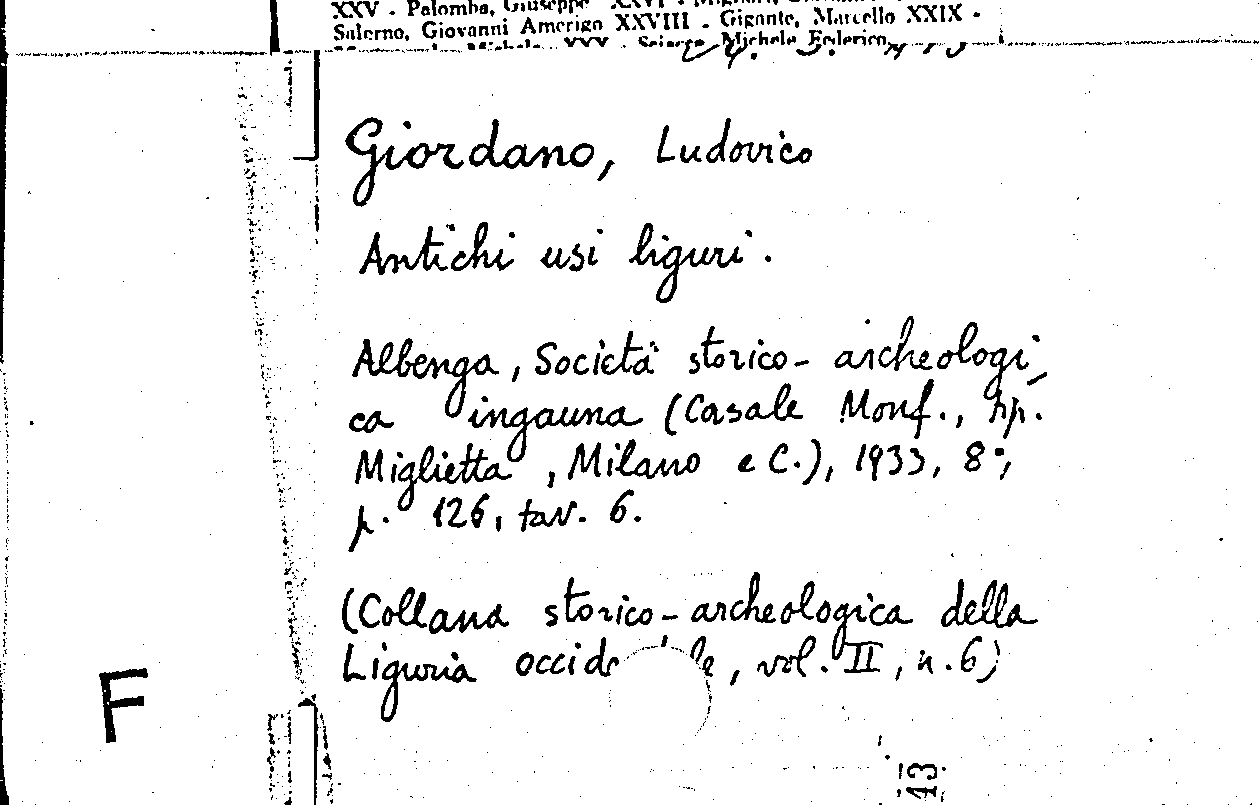 XXV - Palomba, Giuseppe XXVI -
Salerno, Giovanni Amerigo XXVIII - Gigante, Marcello XXIX -
Michele XXX - Sciacca Michele Federico
Giordano, Ludovico
Antichi usi liguri.
Albenga, Società storico-archeologi-
ca ingauna (Casale Monf., tip.
Miglietta, Milano e C.), 1933, 8°,
p. 126, tav. 6.
(Collana storico-archeologica della
Liguria occide le, vol. II, n. 6)
F
43